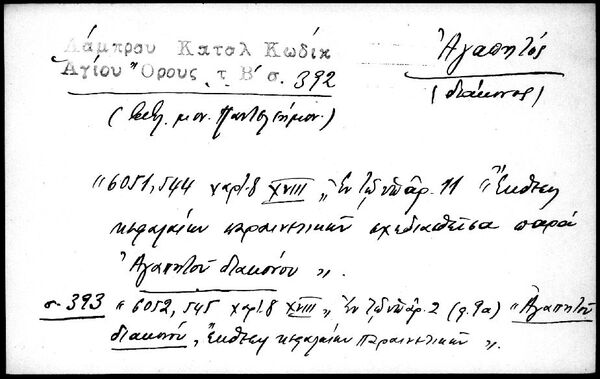 Λάμπρου Καταλ Κωδικ
Ἁγίου Ὄρους τ. Β' σ. 392
Ἀγαπητός
(διάκονος)
(Βιβλ. μον. Παντελεήμον.)
"6051, 544 χαρτ. 8 XVIII „ Ἐν τῷ ὑπ' ἀρ. 11 "Ἔκθεσις
κεφαλαίων παραινετικῶν σχεδιασθεῖσα παρὰ
Ἀγαπητοῦ διακόνου ".
σ. 393 "6052, 545 χαρτ. 8 XVIII „ Ἐν τῷ ὑπ' ἀρ. 2 (φ. 9α) "Ἀγαπητοῦ
διακόνου, Ἔκθεσις κεφαλαίων παραινετικῶν ".